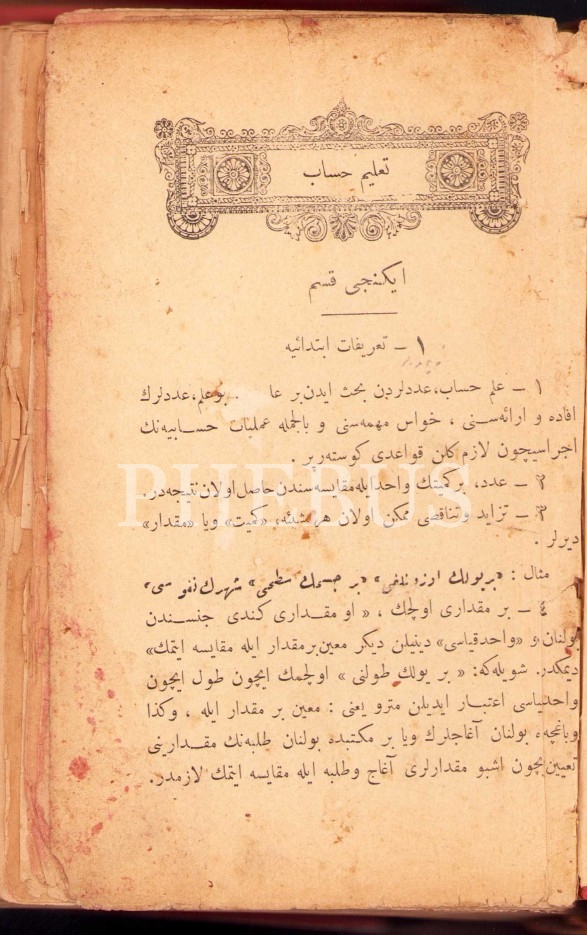 تعليم حساب
ايكنجى قسم
١ — تعريفات ابتدائيه
١ — علم حساب، عددلردن بحث ايدن بر عا . بوعلم، عددلرك
افاده و ارائه‌سنى ، خواص مهمه‌سنى و بالجمله عمليات حسابيه‌نك
اجراسيچون لازم كلن قواعدى كوسته‌رير .
٢ — عدد، بر كميتك واحد ايله مقايسه‌سندن حاصل اولان نتيجه‌در.
٣ — تزايد و تناقصى ممكن اولان هر شيئه، «كميت» ويا «مقدار»
ديرلر .
مثال : «بر يولك اوزونلغى» «بر جسمك سطحى» شهرك نفوسى»
٤ — بر مقدارى اولچمك ، « او مقدارى كندى جنسندن
بولنان و «واحد قياسى» دينيلن ديكر معين بر مقدار ايله مقايسه ايتمك»
ديمكدر. شويله‌كه: « بر يولك طولنى » اولچمك ايچون طول ايچون
واحد قياسى اعتبار ايديلن مترو يعنى : معين بر مقدار ايله ، وكذا
وباغچه‌ده بولنان آغاجلرك ويا بر مكتبده بولنان طلبه‌نك مقدارينى
تعيين ايچون اشبو مقدارلرى آغاج وطلبه ايله مقايسه ايتمك لازمدر.
PHEBUS